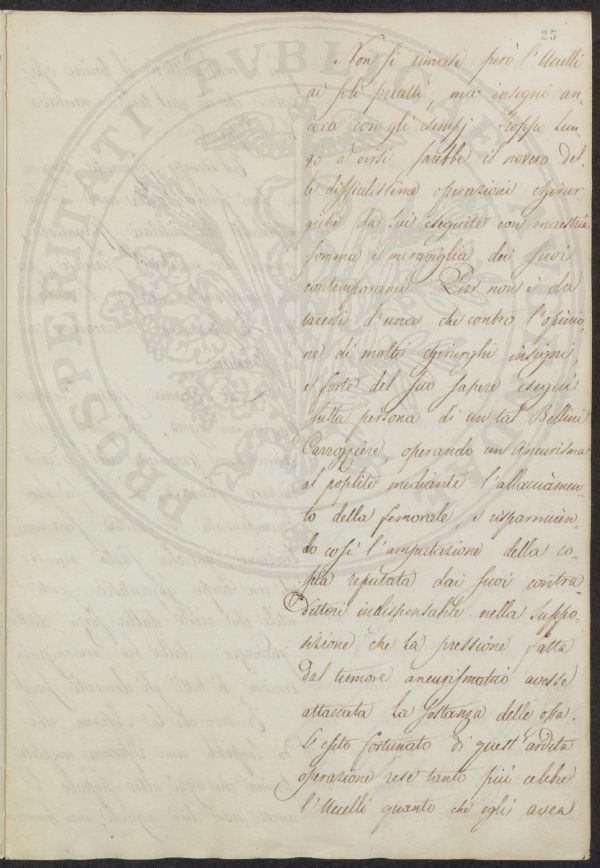 25
Non si rimase però l'Uccelli
ai soli precetti, ma insegnò an-
cora con gli esempj. Troppo lun-
go a dirsi sarebbe il novero del-
le difficilissime operazioni chirur-
giche da lui eseguite con maestria
somma e meraviglia dei suoi
contemporanei. Pur non è da
tacersi d'una che contro l'opinio-
ne di molti chirurghi insigni,
e forte del suo sapere eseguì
sulla persona di un tal Bellini
Carrozziere, operando un aneurisma
al poplite mediante l'allacciamen-
to della femorale, e risparmian-
do così l'amputazione della co-
scia reputata dai suoi contra-
dittori indispensabile nella suppo-
sizione che la pressione fatta
dal tumore aneurismatico avesse
attaccata la sostanza delle ossa.
L'esito fortunato di quest'ardita
operazione rese tanto più celebre
l'Uccelli quanto che egli avea
PROSPERITATI PVBLICAE